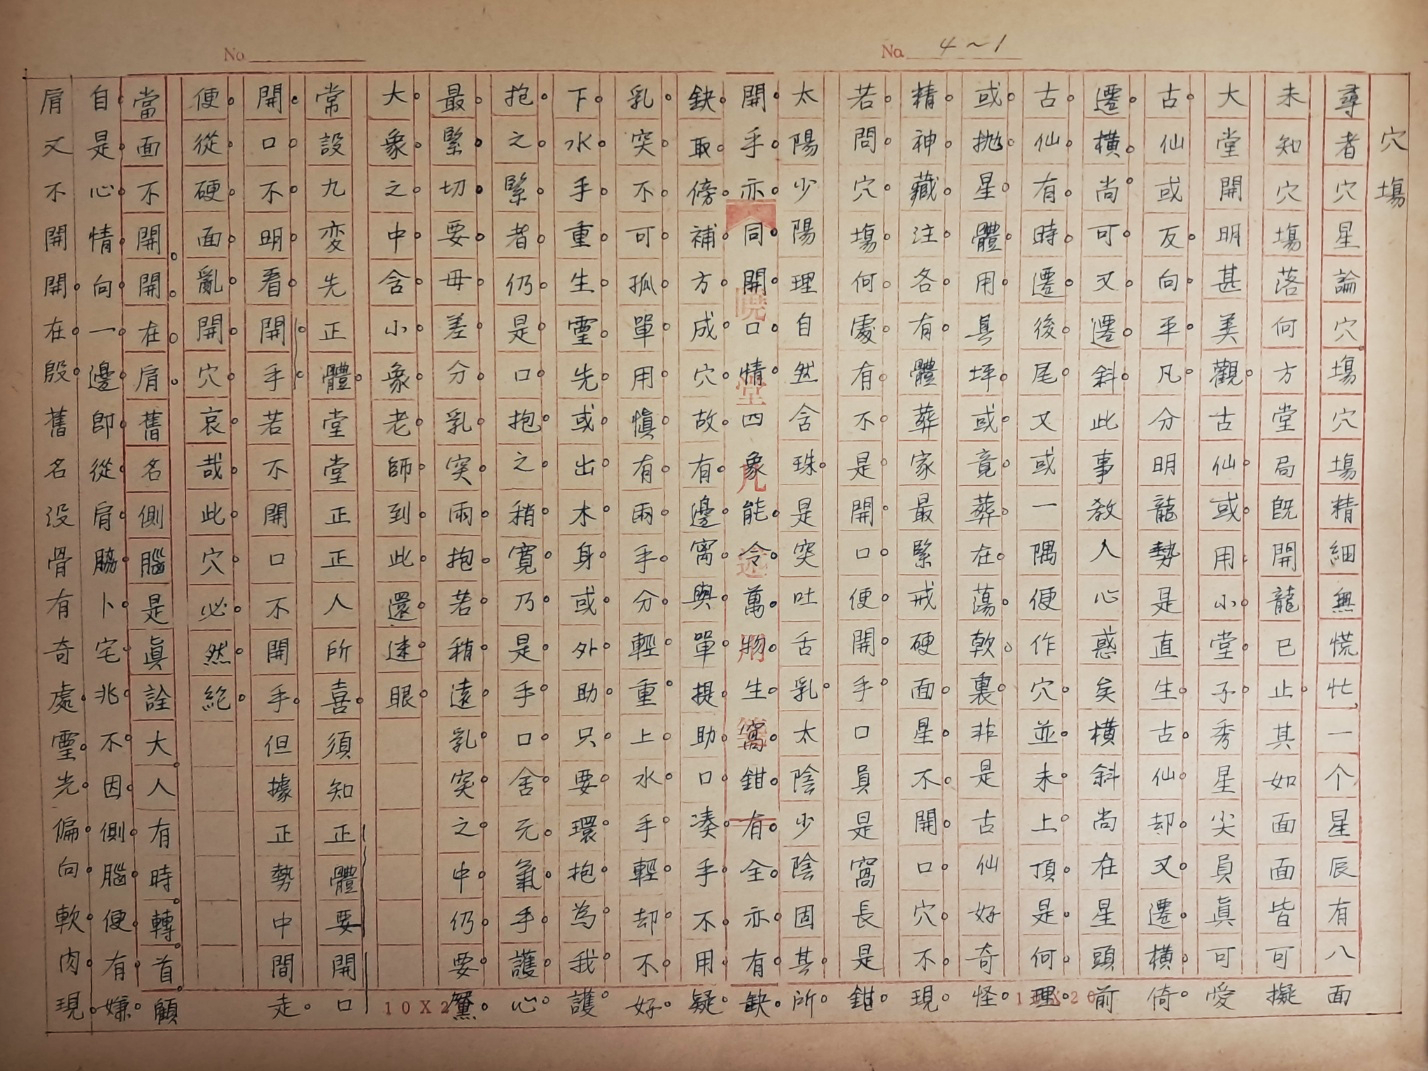 No.
No. 4~1
穴塲
尋者穴星論穴塲穴塲精細無慌忙一个星辰有八面
未知穴塲落何方堂局旣開龍已止其如面面皆可擬
大堂開明甚美觀古仙或用小堂子秀星尖員眞可愛
古仙或反向平凡分明龍勢是直生古仙却又遷橫倚
遷橫尚可又遷斜此事教人心惑矣橫斜尚在星頭前
古仙有時遷後尾又或一隅便作穴並未上頂是何理
或抛星體用具坪或竟葬在蕩軟裏非是古仙好奇怪
精神藏注各有體葬家最緊戒硬面星不開口穴不現
若問穴塲何處有不是開口便開手口員是窩長是鉗
太陽少陽理自然含珠是突吐舌乳太陰少陰固其所
開手亦同開口情四象能令萬物生窩鉗有全亦有缺
缺取傍補方成穴故有邊窩與單提助口凑手不用疑
乳突不可孤單用愼有兩手分輕重上水手輕却不好
下水手重生靈先或出木身或外助只要環抱為我護
抱之緊者仍是口抱之稍寬乃是手口舍元氣手護心
最緊切要毋差分乳突兩抱若稍遠乳突之中仍要窩
大象之中含小象老師到此還迷眼
常設九変先正體堂堂正正人所喜須知正體要開口
開口不明看開手若不開口不開手但據正勢中間走
便從硬面亂開穴哀哉此穴必然絕
當面不開開在肩舊名側腦是眞詮大人有時轉首顧
自是心情向一邊即從肩脇卜宅兆不因側腦便有嫌
肩又不開開在殷舊名没骨有奇處靈光偏向軟肉現